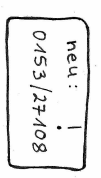 neu: !
0153/27108